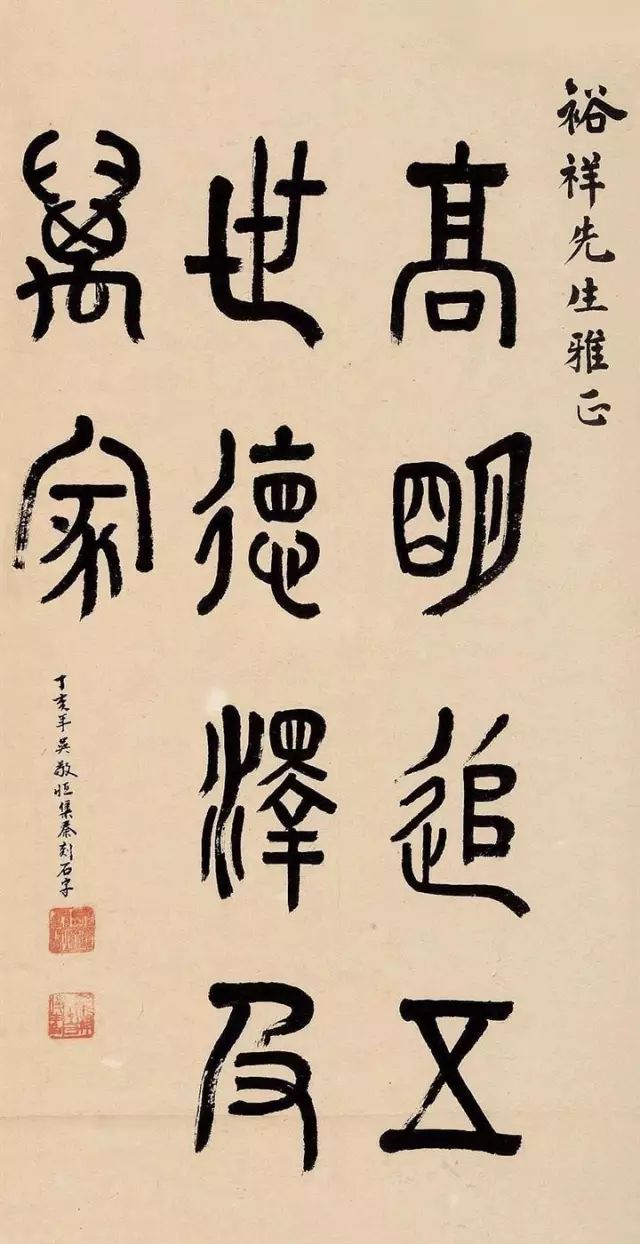 裕祥先生雅正
高明追五
世德澤及
萬家
丁亥年吳敬恒集秦刻石字